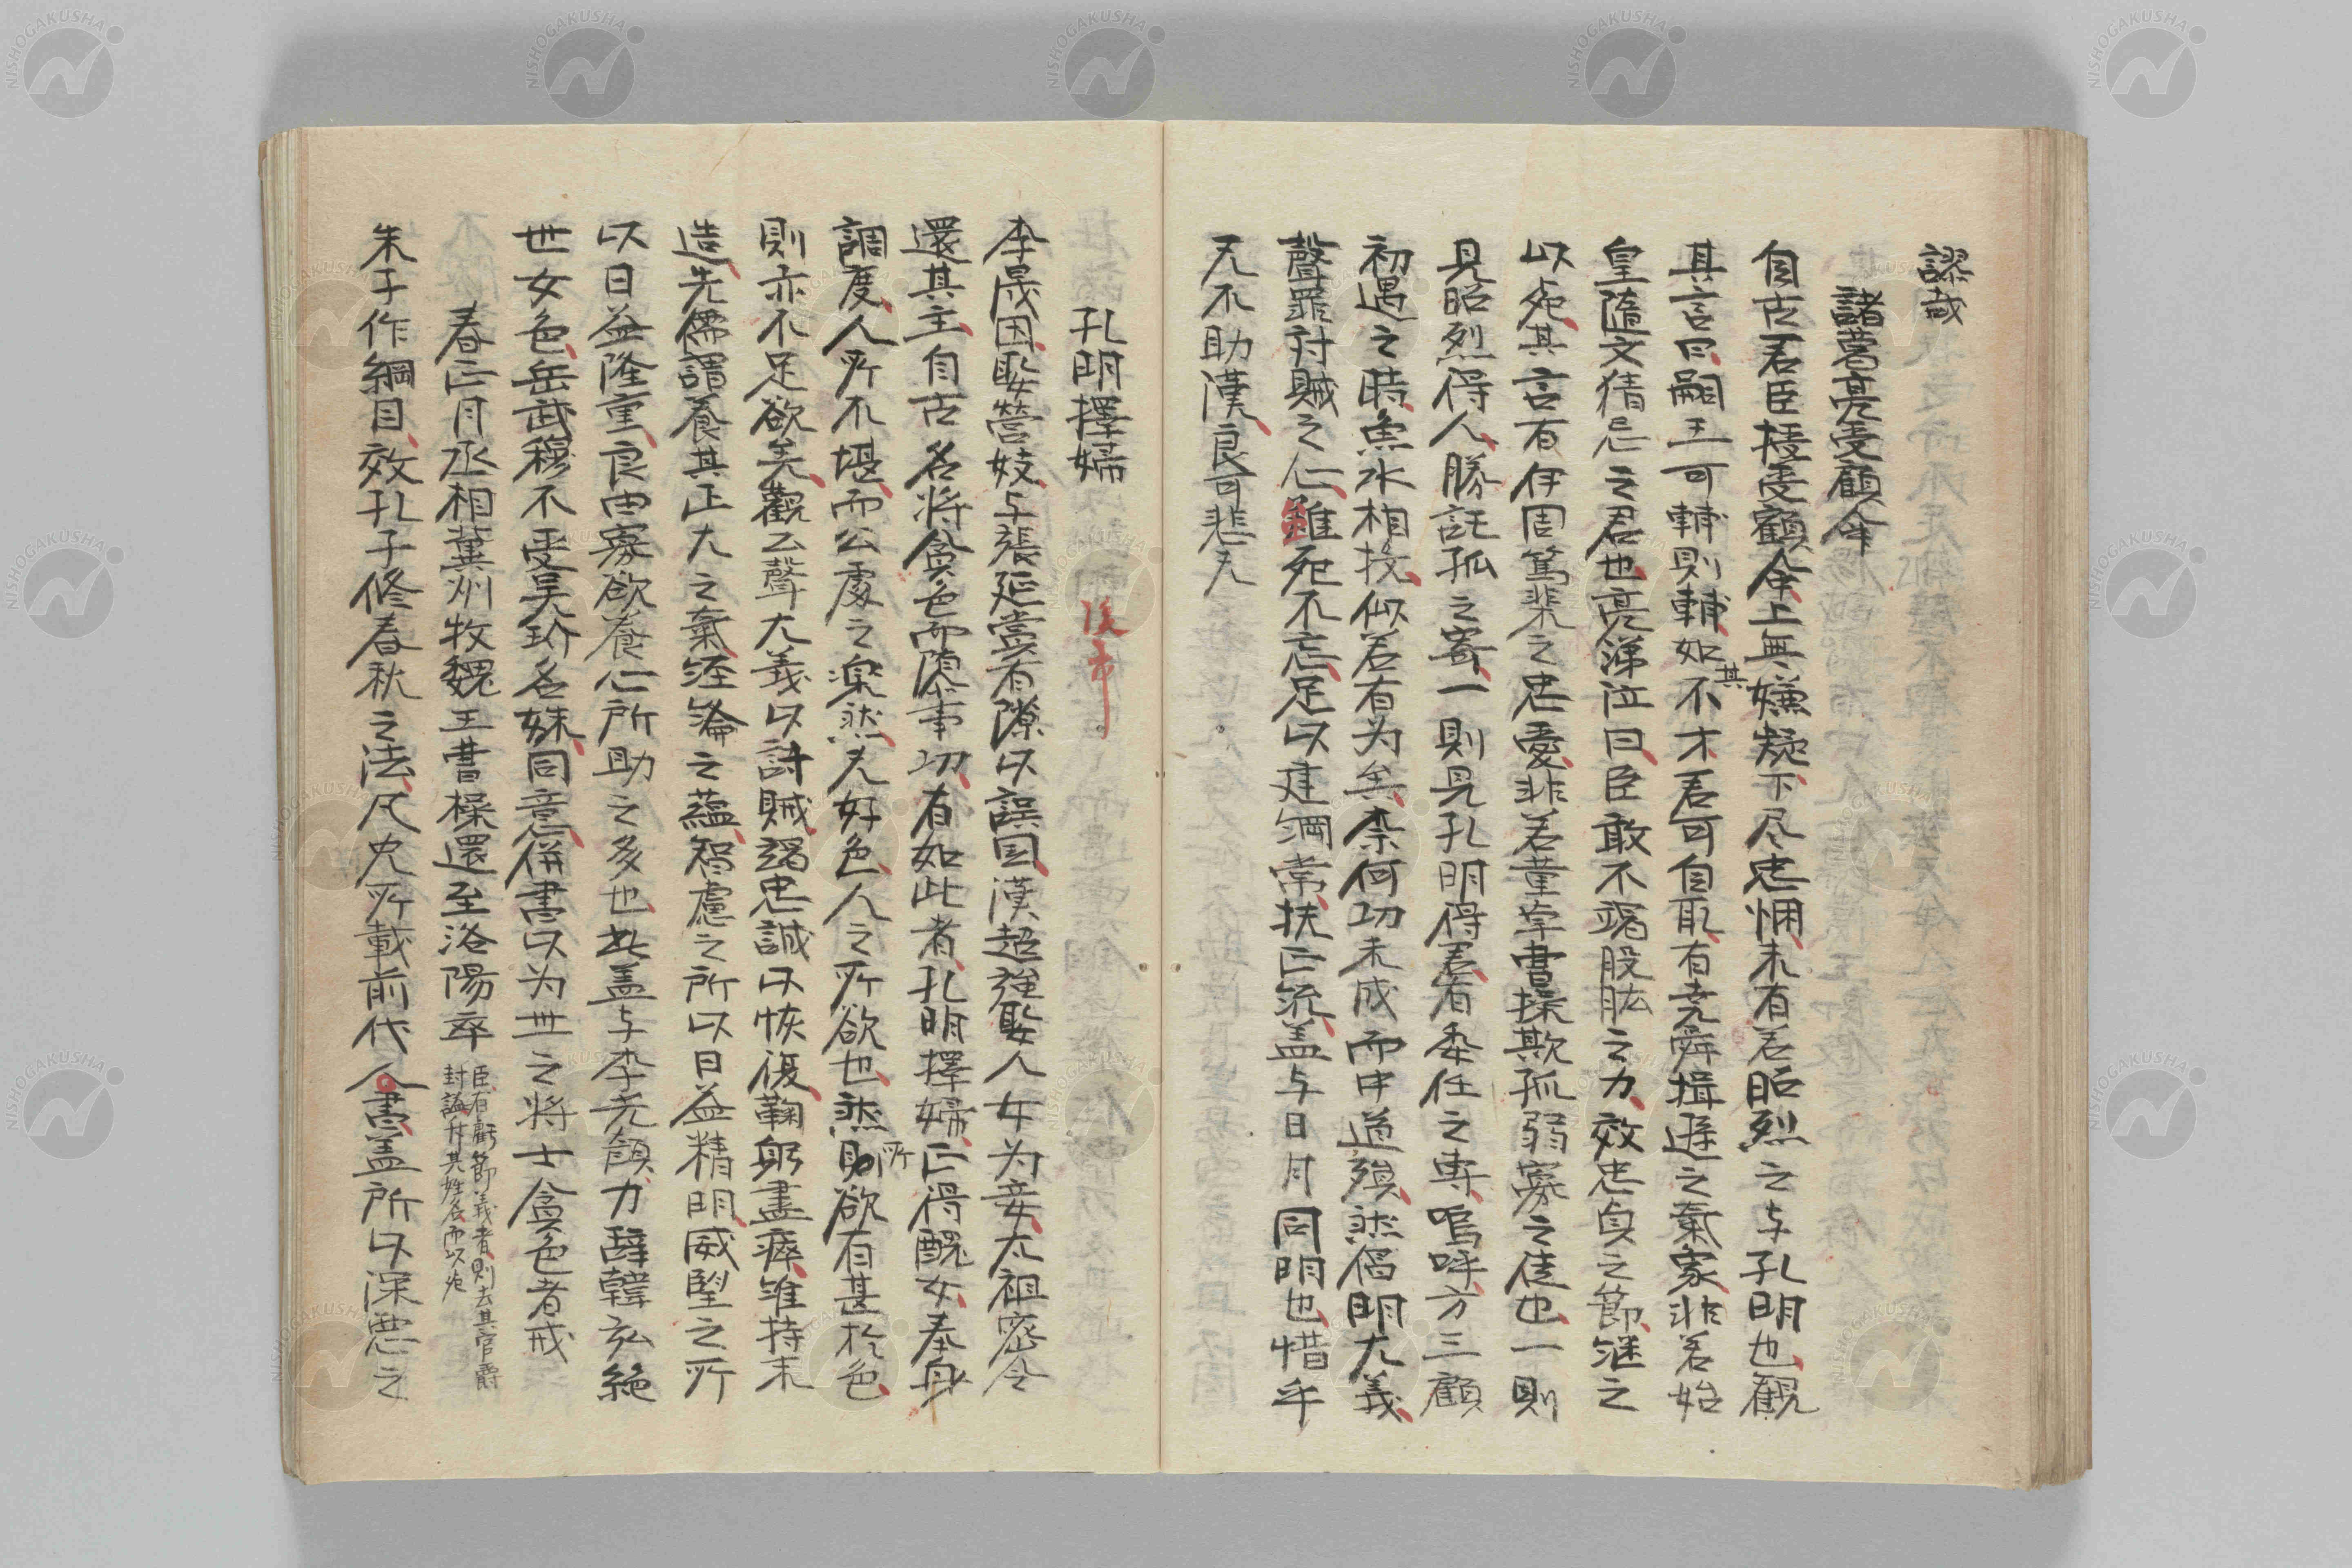 謬哉
諸葛亮受顧命
自古君臣授受顧命上無嫌疑下尽忠悃未有若昭烈之与孔明也観
其言曰嗣王可輔則輔如其不才君可自取有尭舜揖遜之氣象非若始
皇隋文猜忌之君也亮涕泣曰臣敢不竭股肱之力效忠貞之節継之
以死其言有伊周篤棐之忠愛非若董卓曹操欺孤弱寡之徒也一則
見昭烈得人勝託孤之寄一則見孔明得君有委任之専嗚呼方三顧
初遇之時魚水相投似若有为矣柰何功未成而中道殞然倡明大義
聲罪討賊之仁雖死不忘足以建綱常扶正統盖与日月同明也惜乎
天不助漢良可悲夫
孔明擇婦
李晟因娶營妓与張延賞有隙以誤国漢超強娶人女为妾太祖密令
還其主自古名将貪色而隳事功有如此者孔明擇婦正得醜女奉身
調度人所不堪而公處之楽然夫好色人之所欲也然所欲有甚於色
則亦不足欲羙觀乙聲大義以討賊竭忠誠以恢復鞠躬盡瘁維持末
造先儒謂養其正大之氣経綸之蘊智慮之所以日益精明威望之所
以日益隆重良由寡欲養心所助之多也此盖与李光顔力辞韓弘絶
世女色岳武穆不受吴玠名姝同意併書以为丗之将士貪色者戒
春正月丞相冀州牧魏王曹操還至洛陽卒
臣有虧節義者則去其官爵
封謚廾其姓名而以死
朱子作綱目效孔子修春秋之法凡史所載前代人書盖所以深悪之